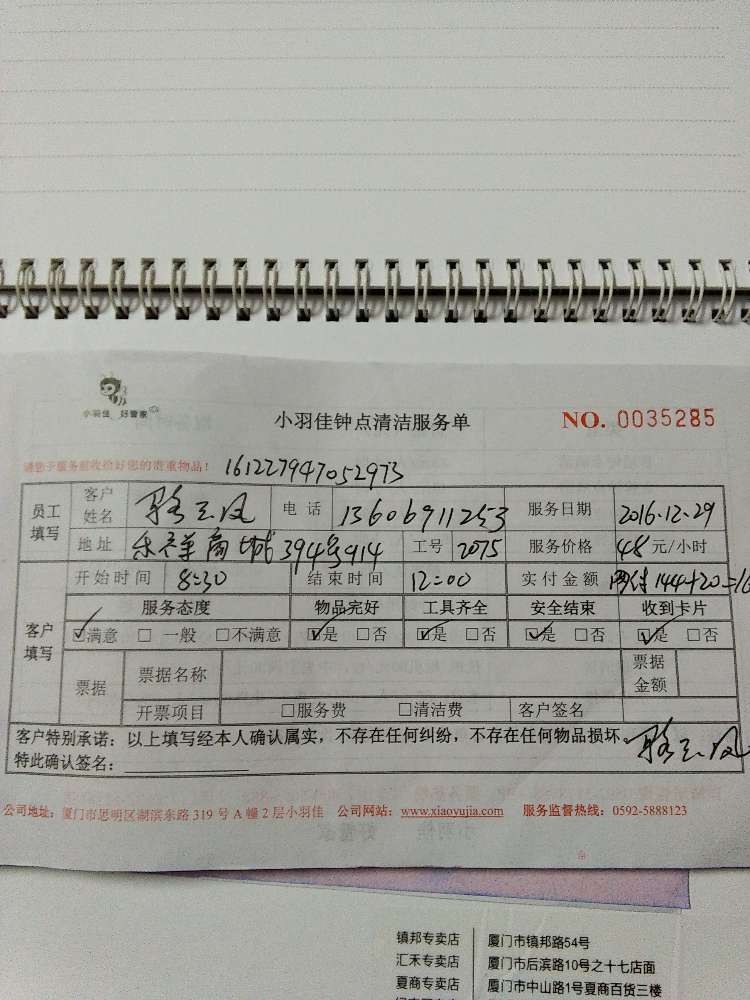 小羽佳 好管家
小羽佳钟点清洁服务单
NO. 0035285
请您于服务前收拾好您的贵重物品！
161227947052973
员工填写 客户姓名 电话 13606911253 服务日期 2016.12.29
地址 商城394号914 工号 2075 服务价格 48元/小时
开始时间 8:30 结束时间 12:00 实付金额 网付144+20=16
客户填写 服务态度 物品完好 工具齐全 安全结束 收到卡片
☑满意 □一般 □不满意 ☑是 □否 ☑是 □否 ☑是 □否 ☑是 □否
票据 票据名称 票据金额
开票项目 □服务费 □清洁费 客户签名
客户特别承诺：以上填写经本人确认属实，不存在任何纠纷，不存在任何物品损坏。
特此确认签名：
公司地址：厦门市思明区湖滨东路 319 号 A 幢 2 层小羽佳 公司网站：www.xiaoyujia.com 服务监督热线：0592-5888123
镇邦专卖店 厦门市镇邦路54号
汇禾专卖店 厦门市后滨路10号之十七店面
夏商专卖店 厦门市中山路1号夏商百货三楼